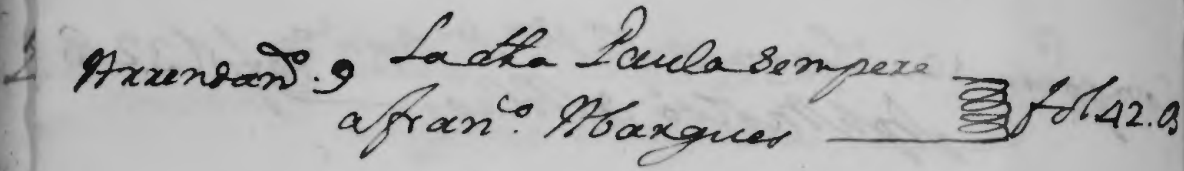 Arrendanº. 9 La dha Paula Sempere
a franco. Marques fol 42. B